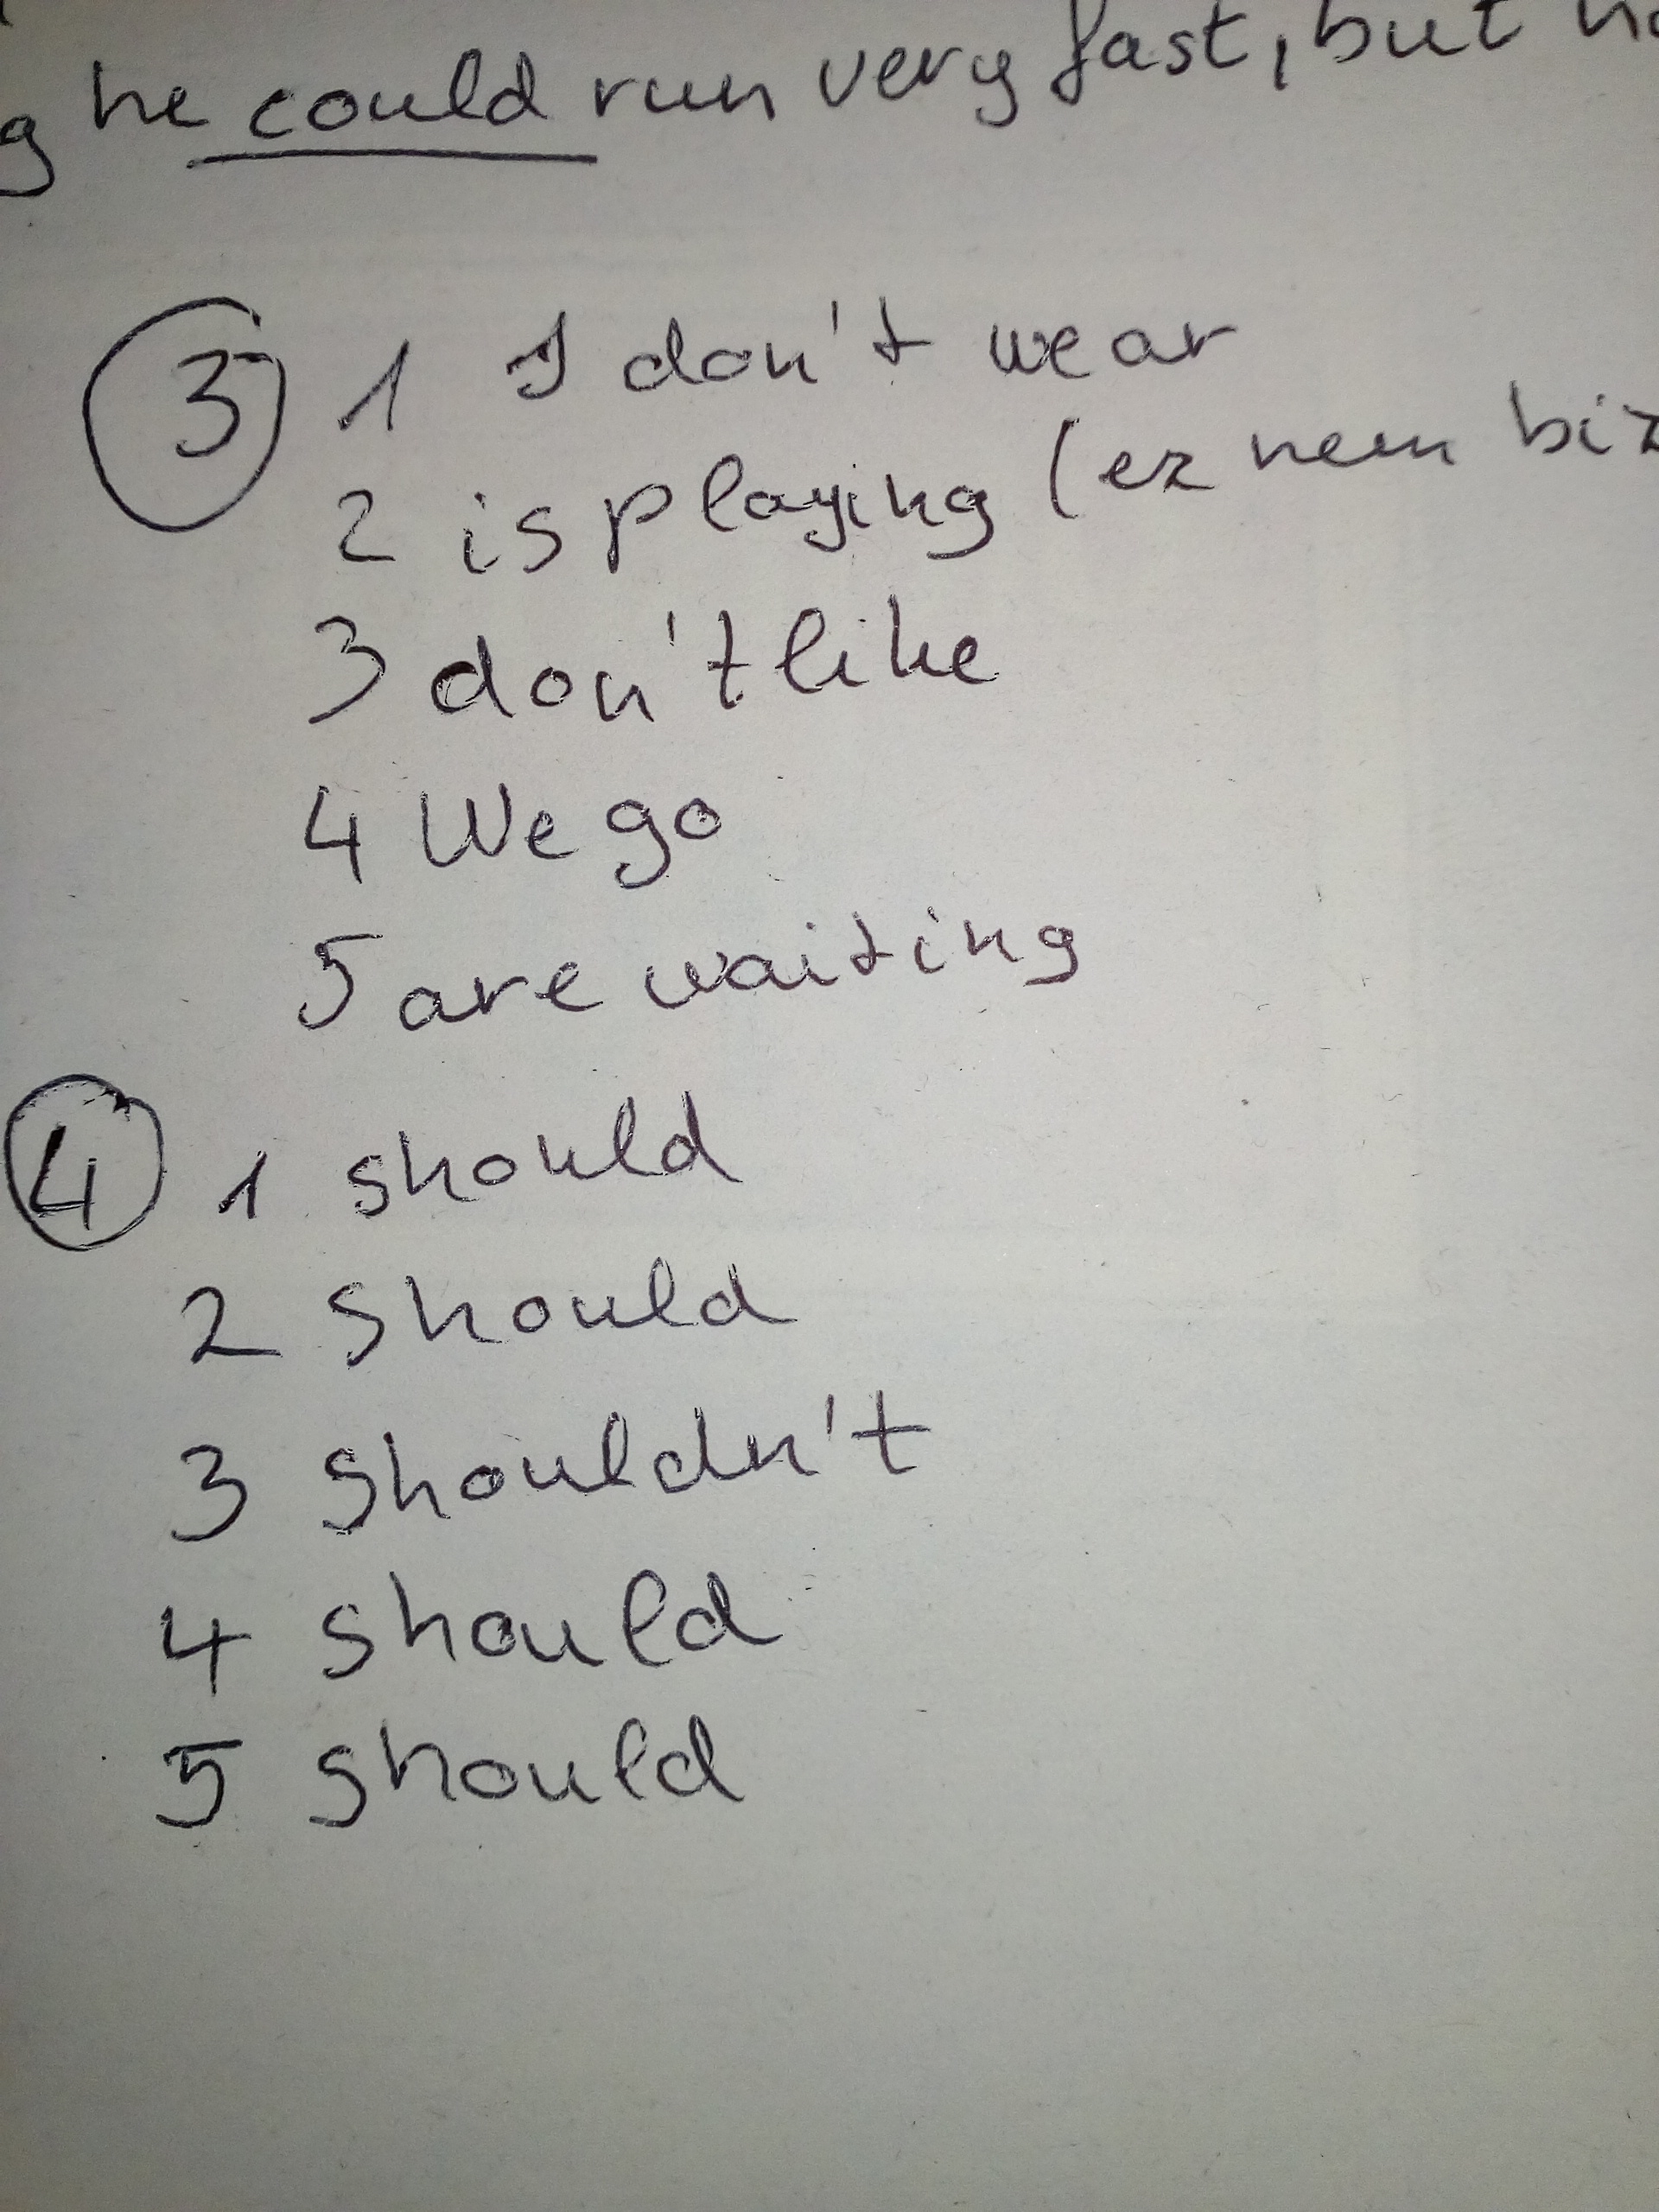 he could run very fast, but
3 1 I don't wear
2 is playing (ez nem
3 don't like
4 We go
5 are waiting
4 1 should
2 should
3 shouldn't
4 should
5 should